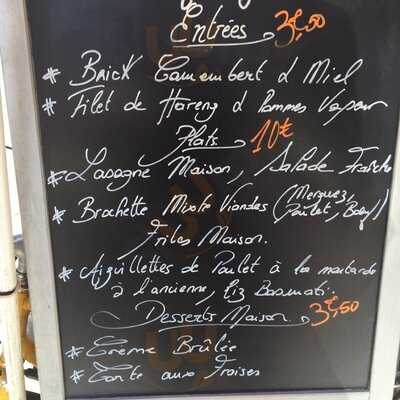 Entrées 3€,50
* Brick Camembert & Miel
* Filet de Hareng & Pommes Vapeur
Plats 10€
* Lasagne Maison, Salade Fraîche
* Brochette Mixte Viandes (Merguez,
Poulet, Bœuf)
Frites Maison.
* Aiguillettes de Poulet à la moutarde
à l'ancienne, Riz Basmati.
Desserts Maison. 3€,50
* Crème Brûlée
* Tarte aux Fraises